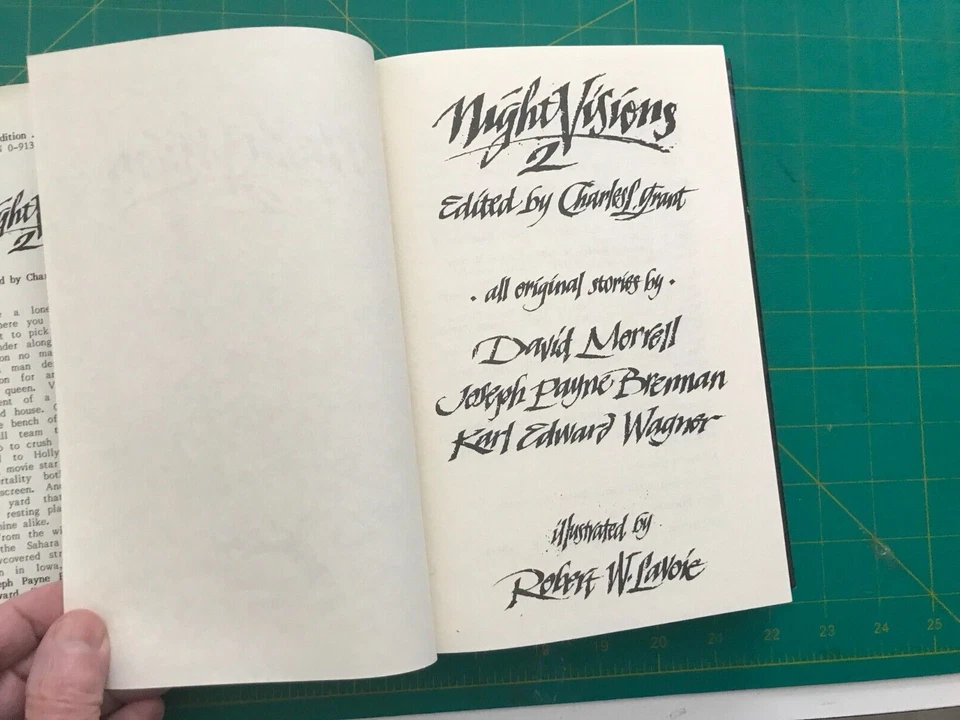 dition .
0-913
ght
2
d by Char
a lone
here you
t to pick
nder along
on no ma
man de
on for an
queen. V
ent of a
d house.
e bench of
ll team t
p to crush
l to Holly
movie star
rtality bot
screen. An
yard that
resting pla
ine alike.
from the wi
the Sahara
ycovered str
n in Iowa,
eph Payne
ward
Night Visions
2
Edited by Charles L. Grant
· all original stories by ·
David Morrell
Joseph Payne Brennan
Karl Edward Wagner
illustrated by
Robert W. Lavoie
20
22
23
24
25